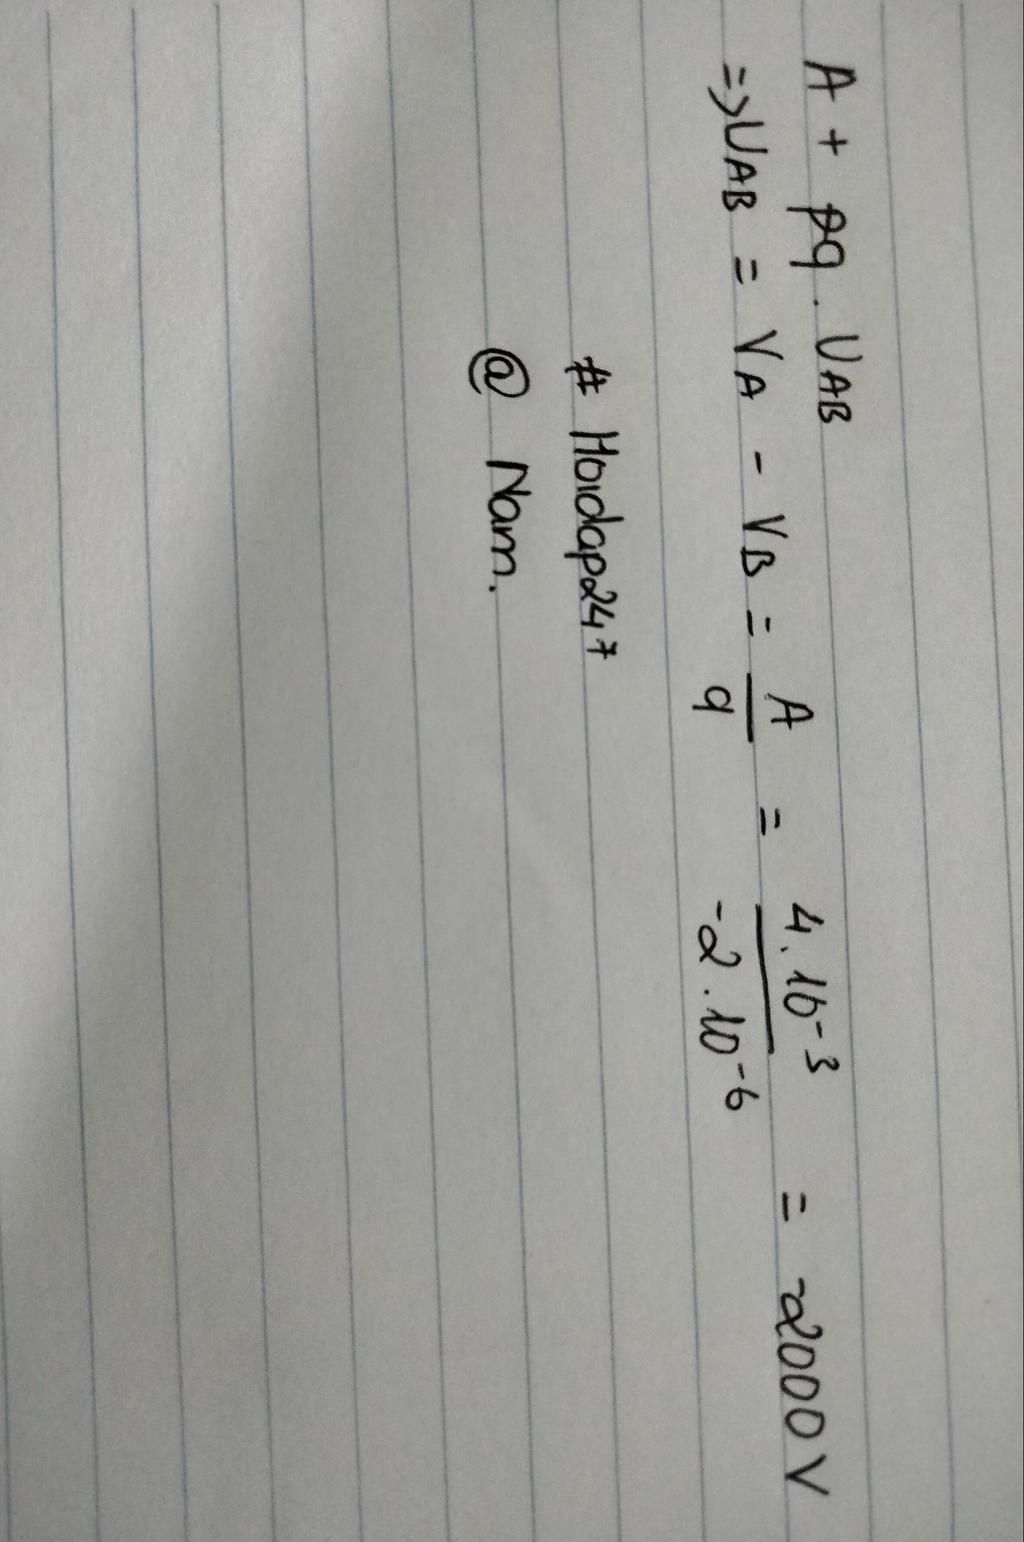 A + pq . UAB
=> UAB = VA - VB = A/q = 4.10-3/-2.10-6 = -2000 V
# Hoidap247
@ Nam.